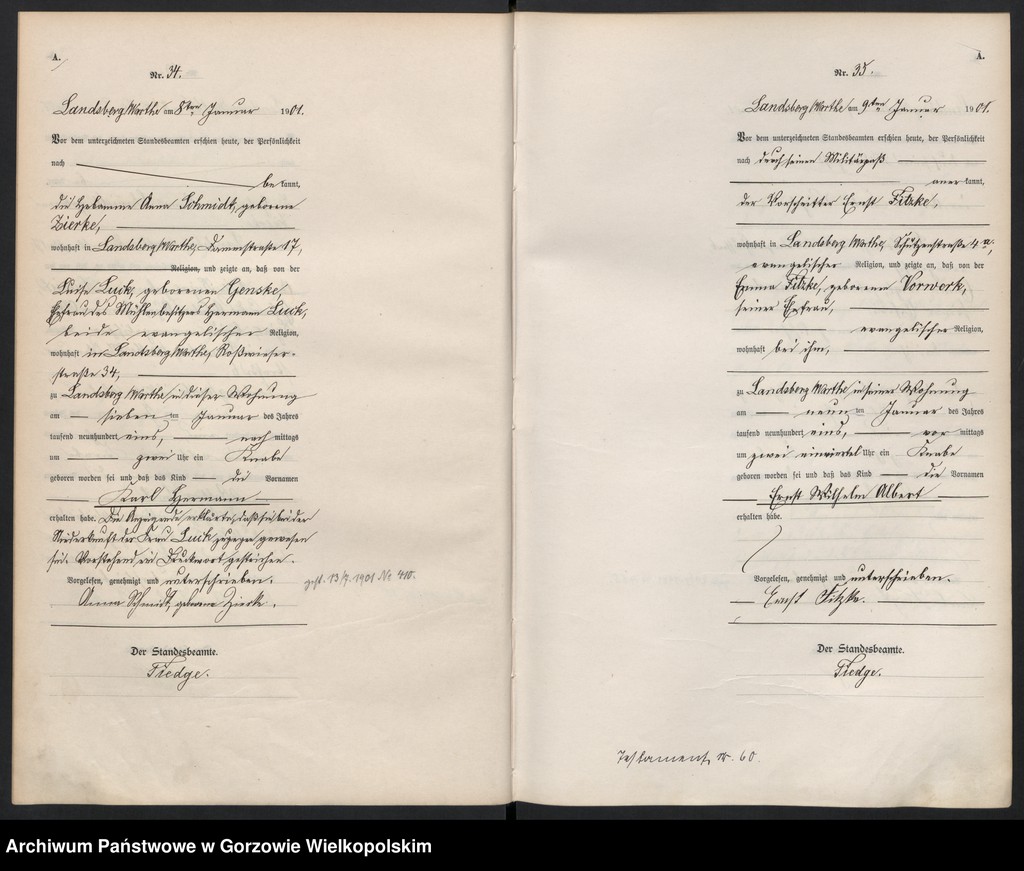 A.
Nr. 34.
Landsberg Warthe am 8ten Januar 1901.
Vor dem unterzeichneten Standesbeamten erschien heute, der Persönlichkeit
nach
be kannt,
die Hebamme Anna Schmidt, geborene
Zierke,
wohnhaft in Landsberg Warthe, Dammstraße 17,
Religion, und zeigte an, daß von der
Luise Luck, geborenen Genske,
Ehefrau des Mühlenbesitzers Hermann Luck,
beide evangelischer Religion,
wohnhaft in Landsberg Warthe, Roßwieser-
straße 34,
zu Landsberg Warthe in dieser Wohnung
am sieben ten Januar des Jahres
tausend neunhundert eins, nach mittags
um zwei Uhr ein Knabe
geboren worden sei und daß das Kind die Vornamen
Karl Hermann
erhalten habe. Die Anzeigende erklärte, daß sie bei der
Niederkunft der Frau Luck zugegen gewesen
sei. Vorstehend ein Druckwort gestrichen.
Vorgelesen, genehmigt und unterschrieben.
Anna Schmidt, geborene Zierke.
gest. 13/7. 1901 No 410.
Der Standesbeamte.
Tiedge.
A.
Nr. 35.
Landsberg Warthe am 9ten Januar 1901.
Vor dem unterzeichneten Standesbeamten erschien heute, der Persönlichkeit
nach durch seinen Militärpaß
aner kannt,
der Vorschnitter Ernst Fitzke,
wohnhaft in Landsberg Warthe, Schützenstraße 4a,
evangelischer Religion, und zeigte an, daß von der
Emma Fitzke, geborenen Vorwerk,
seiner Ehefrau,
evangelischer Religion,
wohnhaft bei ihm,
zu Landsberg Warthe in seiner Wohnung
am neun ten Januar des Jahres
tausend neunhundert eins, vor mittags
um zwei einviertel Uhr ein Knabe
geboren worden sei und daß das Kind die Vornamen
Ernst Wilhelm Albert
erhalten habe.
Vorgelesen, genehmigt und unterschrieben.
Ernst Fitzke.
Der Standesbeamte.
Tiedge.
Testament Nr. 60.
Archiwum Państwowe w Gorzowie Wielkopolskim